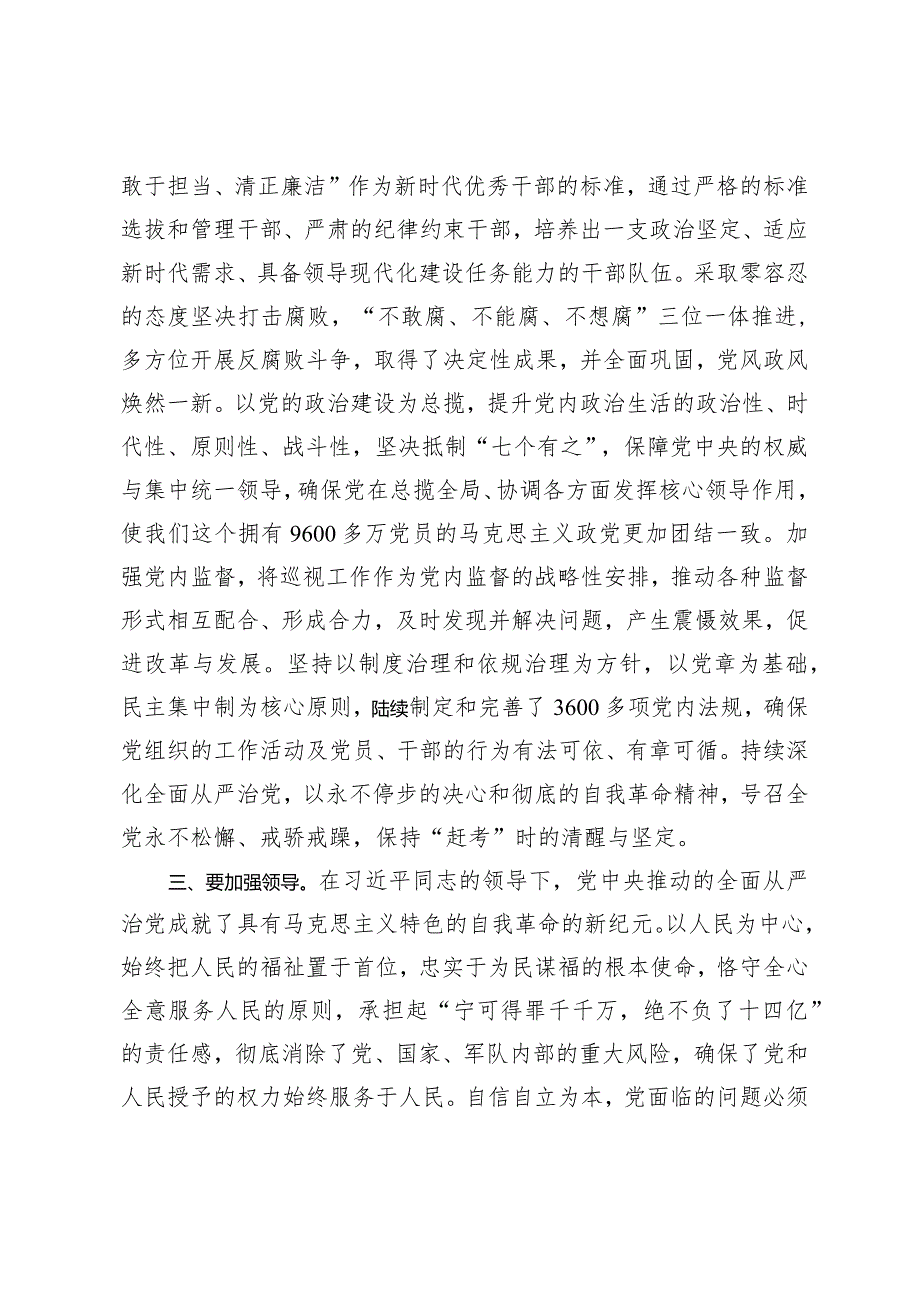 敢于担当、清正廉洁”作为新时代优秀干部的标准，通过严格的标准
选拔和管理干部、严肃的纪律约束干部，培养出一支政治坚定、适应
新时代需求、具备领导现代化建设任务能力的干部队伍。采取零容忍
的态度坚决打击腐败，“不敢腐、不能腐、不想腐”三位一体推进，
多方位开展反腐败斗争，取得了决定性成果，并全面巩固，党风政风
焕然一新。以党的政治建设为总揽，提升党内政治生活的政治性、时
代性、原则性、战斗性，坚决抵制“七个有之”，保障党中央的权威
与集中统一领导，确保党在总揽全局、协调各方面发挥核心领导作用，
使我们这个拥有 9600 多万党员的马克思主义政党更加团结一致。加
强党内监督，将巡视工作作为党内监督的战略性安排，推动各种监督
形式相互配合、形成合力，及时发现并解决问题，产生震慑效果，促
进改革与发展。坚持以制度治理和依规治理为方针，以党章为基础，
民主集中制为核心原则，陆续制定和完善了 3600 多项党内法规，确保
党组织的工作活动及党员、干部的行为有法可依、有章可循。持续深
化全面从严治党，以永不停步的决心和彻底的自我革命精神，号召全
党永不松懈、戒骄戒躁，保持“赶考”时的清醒与坚定。
三、要加强领导。在习近平同志的领导下，党中央推动的全面从严
治党成就了具有马克思主义特色的自我革命的新纪元。以人民为中心，
始终把人民的福祉置于首位，忠实于为民谋福的根本使命，恪守全心
全意服务人民的原则，承担起“宁可得罪千千万，绝不负了十四亿”
的责任感，彻底消除了党、国家、军队内部的重大风险，确保了党和
人民授予的权力始终服务于人民。自信自立为本，党面临的问题必须